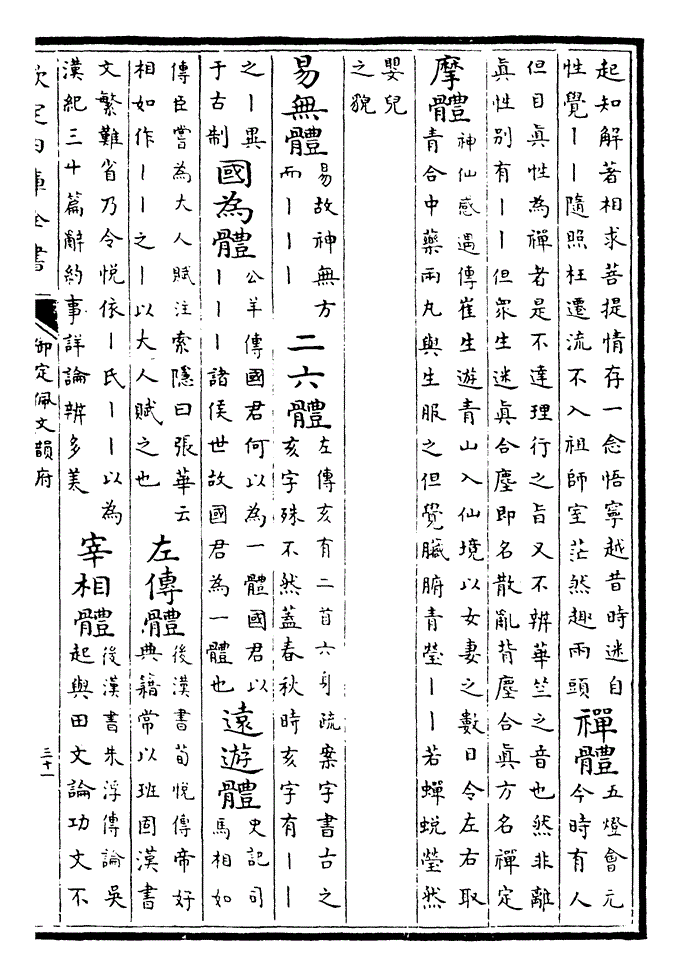 起知解著相求菩提情存一念悟寧越昔時迷自
性覺丨丨隨照枉遷流不入祖師室茫然趣兩頭
禪體
五燈會元
今時有人
但目眞性為禪者是不達理行之旨又不辨華竺之音也然非離
眞性别有丨丨但衆生迷眞合塵即名散亂背塵合眞方名禪定
摩體
神仙感遇傳崔生遊青山入仙境以女妻之數日令左右取
青合中藥兩丸與生服之但覺臟腑青瑩丨丨若蟬蜕瑩然
嬰兒
之貌
易無體
易故神無方
而丨丨丨
二六體
左傳亥有二首六身疏案字書古之
亥字殊不然蓋春秋時亥字有丨丨
之丨異
于古制
國為體
公羊傳國君何以為一體國君以
丨丨丨諸侯世故國君為一體也
遠遊體
史記司
馬相如
傳臣嘗為大人賦注索隱曰張華云
相如作丨丨之丨以大人賦之也
左傳體
後漢書荀悦傳帝好
典籍常以班固漢書
文繁難省乃令悦依丨氏丨丨以為
漢紀三十篇辭約事詳論辨多美
宰相體
後漢書朱浮傳論吳
起與田文論功文不
欽定四庫全書
御定佩文韻府
三十一